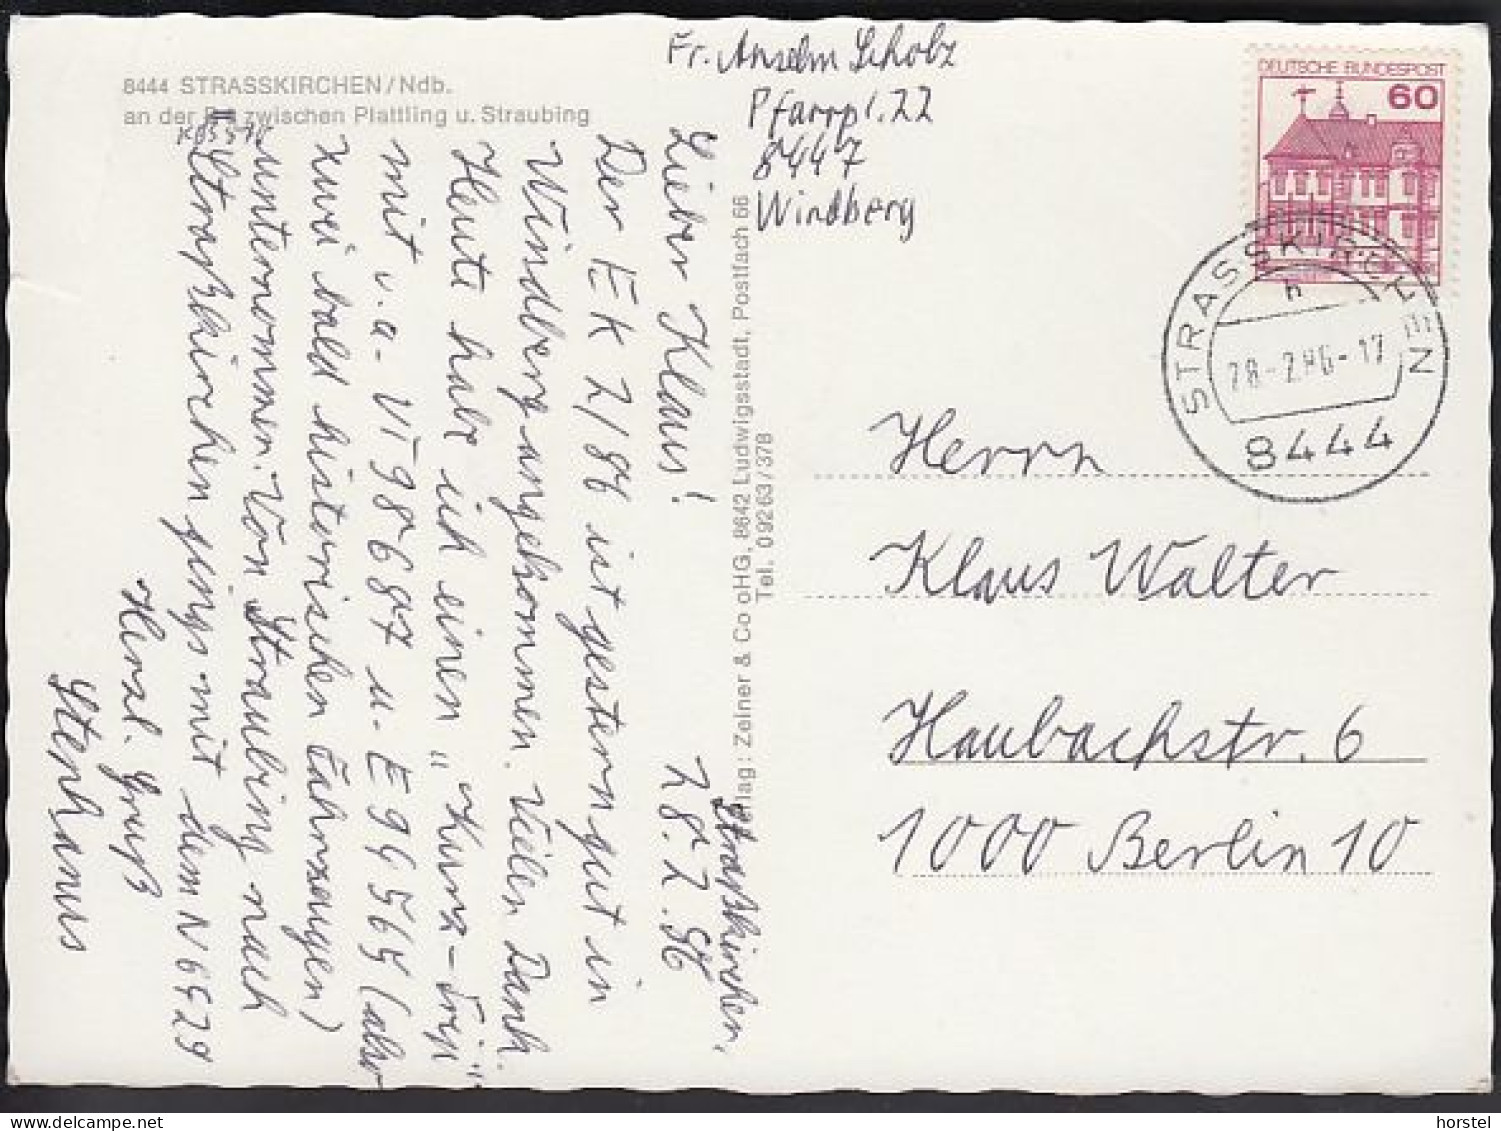 8444 STRASSKIRCHEN/Ndb.
an der B8 zwischen Plattling u. Straubing
Fr. Anselm Scholz
Pfarrpl. 22
8447
Windberg
Straßkirchen,
28.2.86
Lieber Klaus!
Der EK 2/86 ist gestern gut in
Windberg angekommen. Vielen Dank.
Heute habe ich einen „Kurz-Trip"
mit u.a. VT 98 687 u. E 94 564 (also
zwei bald historischen Fahrzeugen)
unternommen. Von Straubing nach
Straßkirchen gings mit dem N 6629
Herzl. Gruß
Stephanus
Verlag: Zelner & Co oHG, 8642 Ludwigsstadt, Postfach 66
Tel. 09263/378
DEUTSCHE BUNDESPOST
60
STRASSKIRCHEN
h
28.-2.86-17
8444
Herrn
Klaus Walter
Haubachstr. 6
1000 Berlin 10
horstel